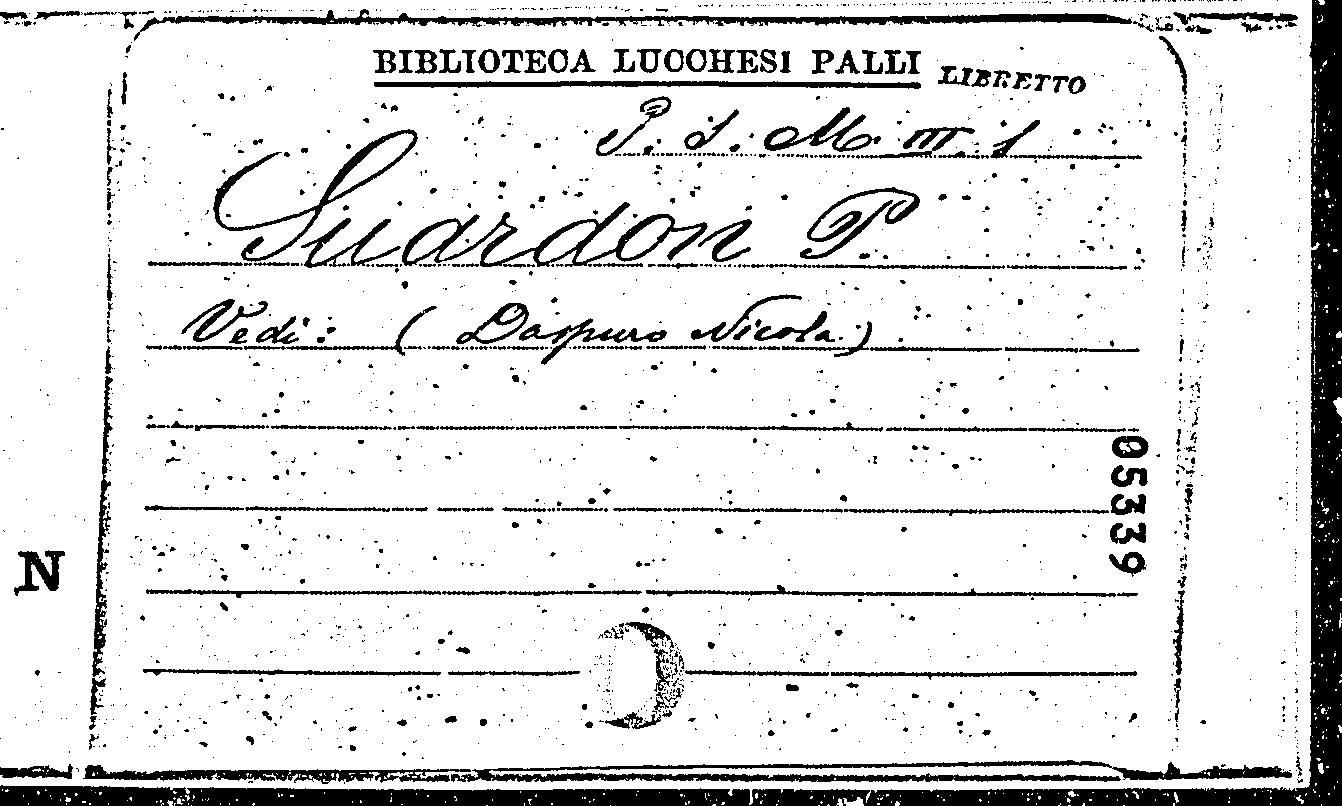 BIBLIOTECA LUCCHESI PALLI LIBRETTO
P. S. M. III. 1
Suardon P.
Vedi: ( Daspuro Nicola.)
05339
N